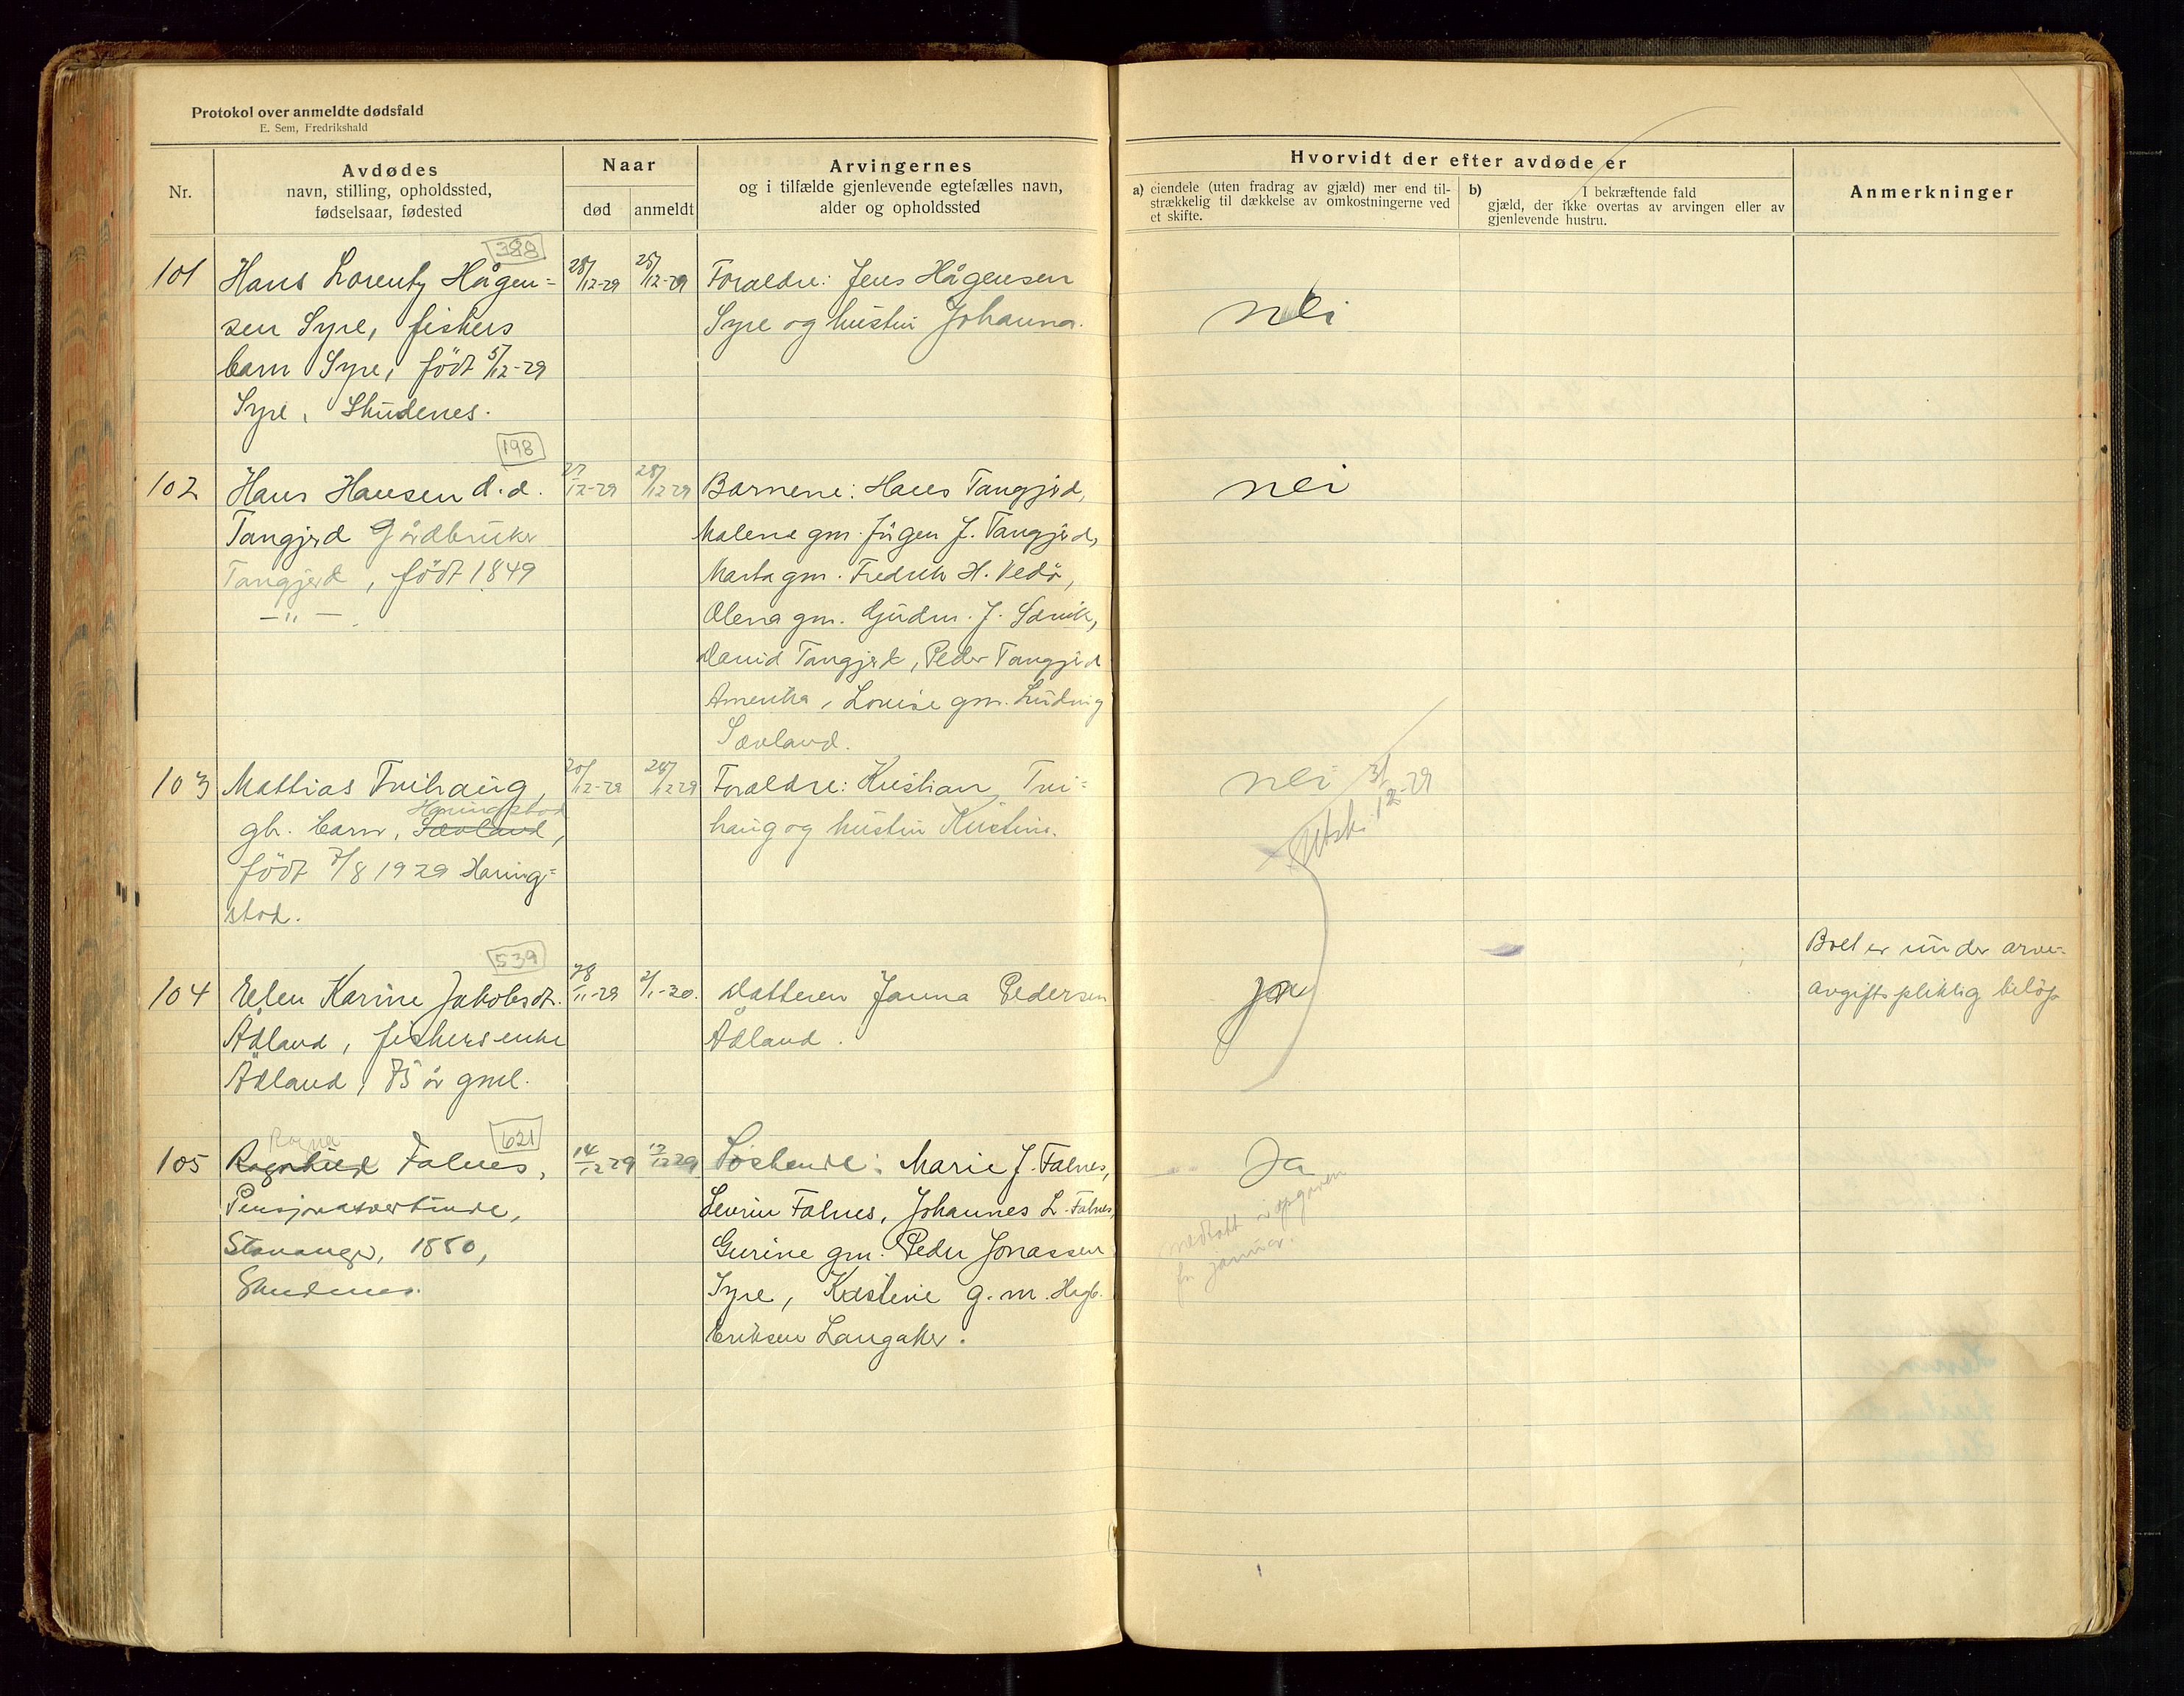 Protokol over anmeldte dødsfald
E. Sem, Fredrikshald
Nr.
Avdødes
navn, stilling, opholdssted,
fødselsaar, fødested
Naar
død
anmeldt
Arvingernes
og i tilfælde gjenlevende egtefælles navn,
alder og opholdssted
Hvorvidt der efter avdøde er
a) eiendele (uten fradrag av gjæld) mer end til-
strækkelig til dækkelse av omkostningerne ved
et skifte.
b) I bekræftende fald
gjæld, der ikke overtas av arvingen eller av
gjenlevende hustru.
Anmerkninger
388
101
Hans Lorentz Hågen=
sen Syre, fiskers
barn Syre, født 5/12-29
Syre, Skudenes.
28/12-29
Foraldre: Jens Hågensen
Syre og hustru Johanna.
nei
198
102
Hans Hansen d.d.
Tangjerd Gårdbruker
Tangjerd, født 1849
—"—
27/12-29
28/12 29
Barnene: Hans Tangjerd,
Malene gm. Jørgen J. Tangjerd,
Marta gm. Fredrik H. Vedø,
Olena gm. Gudm. J. Sævik,
David Tangjerd, Peder Tangjerd
Amerika, Louise gm. Ludvig
Sævland.
nei
103
Mattias Trihaug,
gb. barn, Sævland, Haringstad
født 7/8 1929 Haring=
stad.
20/12-29
28/12 29
Foraldre: Kristian Tri=
haug og hustru Kristine.
nei
Utskr. 31/12-29
539
104
Elen Karine Jakobsdt.
Ådland, fiskers enke
Ådland, 75 år gml.
28/11-29
2/1-30.
Datteren Janna Pedersen
Ådland.
ja
Boet er under arve=
avgiftspliktig beløp
621
105
Ragnhild Falnes, Ragna
Pensjonatvertinde,
Stavanger, 1880,
Skudenes.
14/12 29
Søskende: Marie J. Falnes,
Sevrin Falnes, Johannes L. Falnes,
Gurine gm. Peder Jonassen
Syre, Kristine g.m. Hagb.
Eriksen Langaker.
Ja
medtatt i opgaven
for januar.